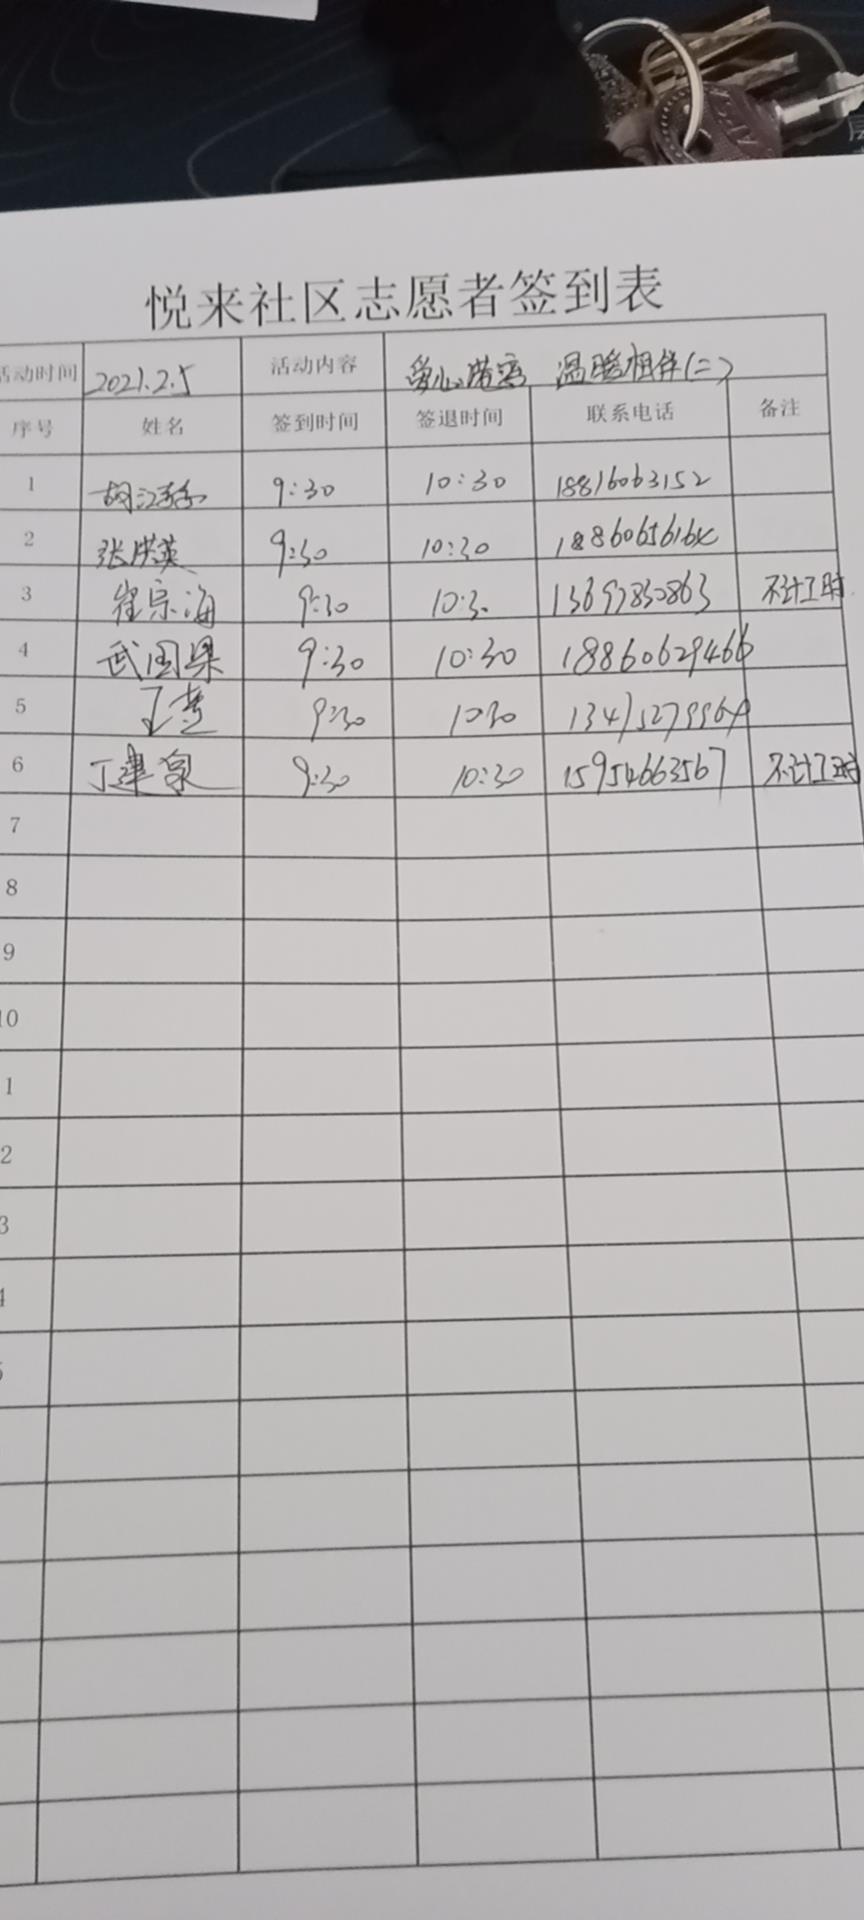 悦来社区志愿者签到表
活动时间 2021.2.5 活动内容 爱心 温暖相伴(二)
序号 姓名 签到时间 签退时间 联系电话 备注
1 9:30 10:30 18816063152
2 张洪英 9:30 10:30
3 崔宗海 9:30 10:30 不计工时
4 武国梁 9:30 10:30 18860629466
5 9:30 10:30
6 丁建泉 9:30 10:30 15954663567 不计工时
7
8
9
10
1
2
3
4
5